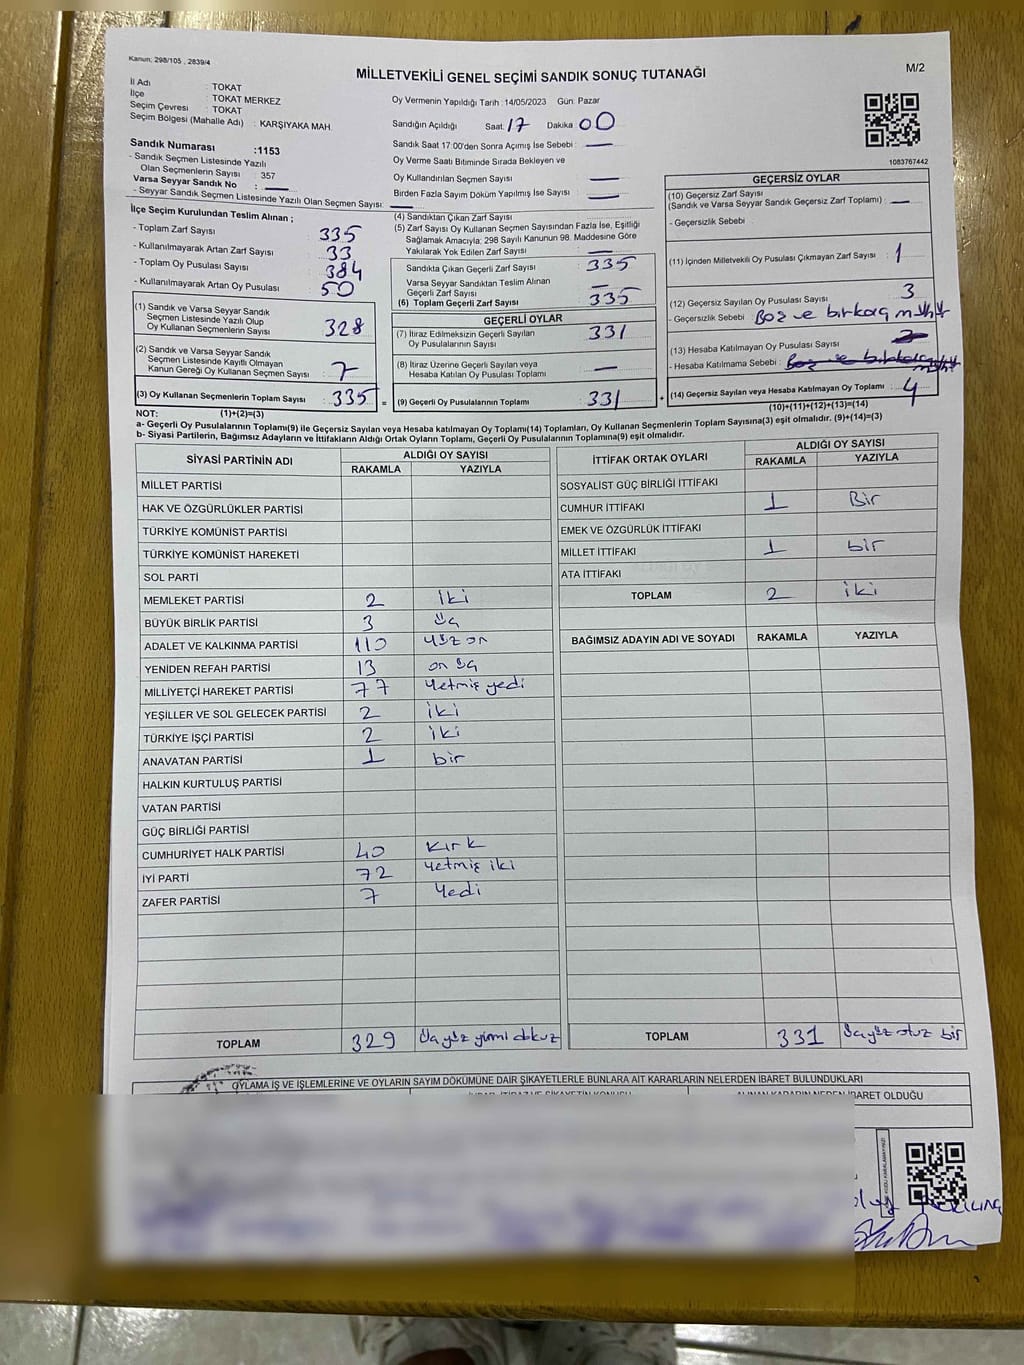 Kanun: 298/105 , 2839/4
MİLLETVEKİLİ GENEL SEÇİMİ SANDIK SONUÇ TUTANAĞI
M/2
İl Adı : TOKAT
İlçe : TOKAT MERKEZ
Seçim Çevresi : TOKAT
Seçim Bölgesi (Mahalle Adı) : KARŞIYAKA MAH.
Sandık Numarası :1153
- Sandık Seçmen Listesinde Yazılı
Olan Seçmenlerin Sayısı : 357
Varsa Seyyar Sandık No : —
- Seyyar Sandık Seçmen Listesinde Yazılı Olan Seçmen Sayısı: —
Oy Vermenin Yapıldığı Tarih :14/05/2023 Gün: Pazar
Sandığın Açıldığı Saat: 17 Dakika 00
Sandık Saat 17:00'den Sonra Açımış İse Sebebi : —
Oy Verme Saati Bitiminde Sırada Bekleyen ve
Oy Kullandırılan Seçmen Sayısı —
Birden Fazla Sayım Döküm Yapılmış İse Sayısı : —
1083767442
İlçe Seçim Kurulundan Teslim Alınan ;
- Toplam Zarf Sayısı : 335
- Kullanılmayarak Artan Zarf Sayısı : 33
- Toplam Oy Pusulası Sayısı : 384
- Kullanılmayarak Artan Oy Pusulası : 50
(1) Sandık ve Varsa Seyyar Sandık
Seçmen Listesinde Yazılı Olup
Oy Kullanan Seçmenlerin Sayısı : 328
(2) Sandık ve Varsa Seyyar Sandık
Seçmen Listesinde Kayıtlı Olmayan
Kanun Gereği Oy Kullanan Seçmen Sayısı : 7
(3) Oy Kullanan Seçmenlerin Toplam Sayısı : 335
(4) Sandıktan Çıkan Zarf Sayısı
(5) Zarf Sayısı Oy Kullanan Seçmen Sayısından Fazla İse, Eşitliği
Sağlamak Amacıyla; 298 Sayılı Kanunun 98. Maddesine Göre
Yakılarak Yok Edilen Zarf Sayısı : —
Sandıkta Çıkan Geçerli Zarf Sayısı : 335
Varsa Seyyar Sandıktan Teslim Alınan
Geçerli Zarf Sayısı : —
(6) Toplam Geçerli Zarf Sayısı : 335
GEÇERLİ OYLAR
(7) İtiraz Edilmeksizin Geçerli Sayılan
Oy Pusulalarının Sayısı : 331
(8) İtiraz Üzerine Geçerli Sayılan veya
Hesaba Katılan Oy Pusulası Toplamı : —
= (9) Geçerli Oy Pusulalarının Toplamı : 331
GEÇERSİZ OYLAR
(10) Geçersiz Zarf Sayısı
(Sandık ve Varsa Seyyar Sandık Geçersiz Zarf Toplamı) : —
- Geçersizlik Sebebi :
(11) İçinden Milletvekili Oy Pusulası Çıkmayan Zarf Sayısı : 1
(12) Geçersiz Sayılan Oy Pusulası Sayısı : 3
- Geçersizlik Sebebi : Boş ve birkaç mühür
(13) Hesaba Katılmayan Oy Pusulası Sayısı :
- Hesaba Katılmama Sebebi : Boş ve birkaç mühür
+ (14) Geçersiz Sayılan veya Hesaba Katılmayan Oy Toplamı : 4
(10)+(11)+(12)+(13)=(14)
NOT: (1)+(2)=(3)
a- Geçerli Oy Pusulalarının Toplamı(9) ile Geçersiz Sayılan veya Hesaba katılmayan Oy Toplamı(14) Toplamları, Oy Kullanan Seçmenlerin Toplam Sayısına(3) eşit olmalıdır. (9)+(14)=(3)
b- Siyasi Partilerin, Bağımsız Adayların ve İttifakların Aldığı Ortak Oyların Toplamı, Geçerli Oy Pusulalarının Toplamına(9) eşit olmalıdır.
SİYASİ PARTİNİN ADI ALDIĞI OY SAYISI
RAKAMLA YAZIYLA
MİLLET PARTİSİ
HAK VE ÖZGÜRLÜKLER PARTİSİ
TÜRKİYE KOMÜNİST PARTİSİ
TÜRKİYE KOMÜNİST HAREKETİ
SOL PARTİ
MEMLEKET PARTİSİ 2 iki
BÜYÜK BİRLİK PARTİSİ 3 üç
ADALET VE KALKINMA PARTİSİ 110 yüz on
YENİDEN REFAH PARTİSİ 13 on üç
MİLLİYETÇİ HAREKET PARTİSİ 77 Yetmiş yedi
YEŞİLLER VE SOL GELECEK PARTİSİ 2 iki
TÜRKİYE İŞÇİ PARTİSİ 2 iki
ANAVATAN PARTİSİ 1 bir
HALKIN KURTULUŞ PARTİSİ
VATAN PARTİSİ
GÜÇ BİRLİĞİ PARTİSİ
CUMHURİYET HALK PARTİSİ 40 Kırk
İYİ PARTİ 72 Yetmiş iki
ZAFER PARTİSİ 7 Yedi
TOPLAM 329 Üç yüz yirmi dokuz
İTTİFAK ORTAK OYLARI ALDIĞI OY SAYISI
RAKAMLA YAZIYLA
SOSYALİST GÜÇ BİRLİĞİ İTTİFAKI
CUMHUR İTTİFAKI 1 Bir
EMEK VE ÖZGÜRLÜK İTTİFAKI
MİLLET İTTİFAKI 1 bir
ATA İTTİFAKI
TOPLAM 2 iki
BAĞIMSIZ ADAYIN ADI VE SOYADI RAKAMLA YAZIYLA
TOPLAM 331 Üçyüz otuz bir
OYLAMA İŞ VE İŞLEMLERİNE VE OYLARIN SAYIM DÖKÜMÜNE DAİR ŞİKAYETLERLE BUNLARA AİT KARARLARIN NELERDEN İBARET BULUNDUKLARI
ALINAN KARARIN NEDEN İBARET OLDUĞU